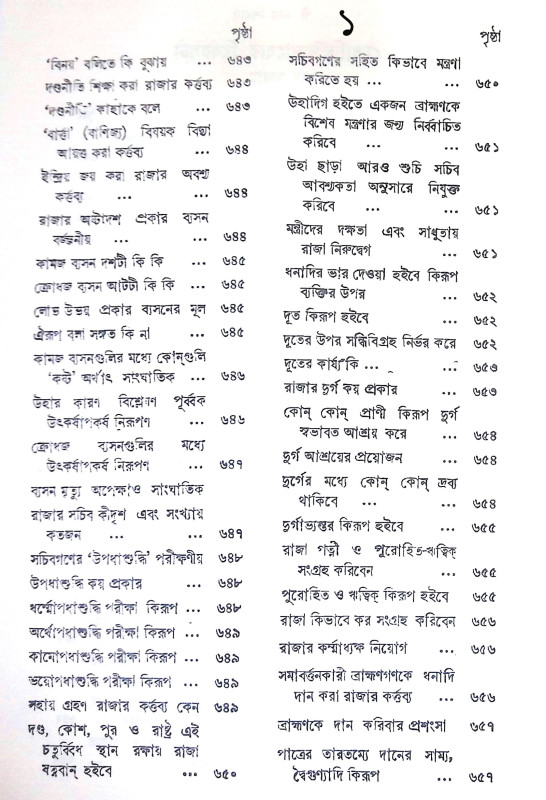 ১
পৃষ্ঠা
'বিনয়' বলিতে কি বুঝায় ... ৬৪৩
দণ্ডনীতি শিক্ষা করা রাজার কর্ত্তব্য ৬৪৩
'দণ্ডনীতি' কাহাকে বলে ... ৬৪৩
'বার্ত্তা' (বাণিজ্য) বিষয়ক বিদ্যা
আয়ত্ত করা কর্ত্তব্য ... ৬৪৪
ইন্দ্রিয় জয় করা রাজার অবশ্য
কর্ত্তব্য ... ... ৬৪৪
রাজার অষ্টাদশ প্রকার ব্যসন
বর্জ্জনীয় ... ... ৬৪৪
কামজ ব্যসন দশটী কি কি ... ৬৪৫
ক্রোধজ ব্যসন আটটী কি কি ... ৬৪৫
লোভ উভয় প্রকার ব্যসনের মূল ৬৪৫
ঐরূপ বলা সঙ্গত কি না ... ৬৪৫
কামজ ব্যসনগুলির মধ্যে কোন্‌গুলি
'কষ্ট' অর্থাৎ সাংঘাতিক ... ৬৪৬
উহার কারণ বিশ্লেষণ পূর্ব্বক
উৎকর্ষাপকর্ষ নিরূপণ ... ৬৪৬
ক্রোধজ ব্যসনগুলির মধ্যে
উৎকর্ষাপকর্ষ নিরূপণ ... ৬৪৭
ব্যসন মৃত্যু অপেক্ষাও সাংঘাতিক
রাজার সচিব কীদৃশ এবং সংখ্যায়
কতজন ... ... ৬৪৭
সচিবগণের 'উপধাশুদ্ধি' পরীক্ষণীয় ৬৪৮
উপধাশুদ্ধি কয় প্রকার ... ৬৪৮
ধর্ম্মোপধাশুদ্ধি পরীক্ষা কিরূপ ... ৬৪৮
অর্থোপধাশুদ্ধি পরীক্ষা কিরূপ ... ৬৪৯
কামোপধাশুদ্ধি পরীক্ষা কিরূপ ... ৬৪৯
ভয়োপধাশুদ্ধি পরীক্ষা কিরূপ ... ৬৪৯
সহায় গ্রহণ রাজার কর্ত্তব্য কেন ৬৪৯
দণ্ড, কোশ, পুর ও রাষ্ট্র এই
চতুর্ব্বিধ স্থান রক্ষায় রাজা
যত্নবান্ হইবে ... ৬৫০
পৃষ্ঠা
সচিবগণের সহিত কিভাবে মন্ত্রণা
করিতে হয় ... ... ৬৫০
উহাদিগ হইতে একজন ব্রাহ্মণকে
বিশেষ মন্ত্রণার জন্য নির্ব্বাচিত
করিবে ... ... ৬৫১
উহা ছাড়া আরও শুচি সচিব
আবশ্যকতা অনুসারে নিযুক্ত
করিবে ... ... ৬৫১
মন্ত্রীদের দক্ষতা এবং সাধুতায়
রাজা নিরুদ্বেগ ... ৬৫১
ধনাদির ভার দেওয়া হইবে কিরূপ
ব্যক্তির উপর ... ৬৫২
দূত কিরূপ হইবে ... ৬৫২
দূতের উপর সন্ধিবিগ্রহ নির্ভর করে ৬৫২
দূতের কার্য্য কি ... ... ৬৫৩
রাজার দুর্গ কয় প্রকার ... ৬৫৩
কোন্ কোন্ প্রাণী কিরূপ দুর্গ
স্বভাবত আশ্রয় করে ... ৬৫৪
দুর্গ আশ্রয়ের প্রয়োজন ... ৬৫৪
দুর্গের মধ্যে কোন্ কোন্ দ্রব্য
থাকিবে ... ... ৬৫৪
দুর্গাভ্যন্তর কিরূপ হইবে ... ৬৫৫
রাজা পত্নী ও পুরোহিত-ঋত্বিক্
সংগ্রহ করিবেন ... ৬৫৫
পুরোহিত ও ঋত্বিক্ কিরূপ হইবে ৬৫৫
রাজা কিভাবে কর সংগ্রহ করিবেন ৬৫৬
রাজার কর্ম্মাধ্যক্ষ নিয়োগ ... ৬৫৬
সমাবর্ত্তনকারী ব্রাহ্মণগণকে ধনাদি
দান করা রাজার কর্ত্তব্য ... ৬৫৬
ব্রাহ্মণকে দান করিবার প্রশংসা ৬৫৭
পাত্রের তারতম্যে দানের সাম্য,
দ্বৈগুণ্যাদি কিরূপ ... ৬৫৭